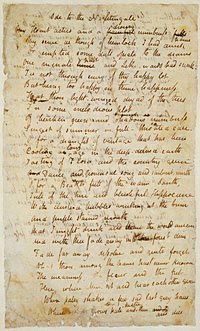 Ode to the Nightingale
My Heart aches and a painful numbness falls
My sense as though of hemlock I had drunk
Or emptied some dull opiate to the drains
One minute hence and Lethe wards had sunk
Tis not through envy of thy happy lot
But being too happy in thine happiness
That thou light-winged dryad of the trees
In some melodious plot
Of beechen green and shadows numberless
Singest of summer in full-throated ease.
O for a draught of vintage that has been
Cooling an age in the deep-delved earth
Tasting of Flora and the country green
And Dance and provencal song and sunburnt mirth
O for a Beaker full of the warm South
Full of the true and blushful Hippocrene
With cluster'd bubbles winking at the brim
And purple stained mouth
That I might drink and leave the world unseen
And with thee fade away dim
Fade far away dissolve and quite forget
What thou among the leaves hast never known
The weariness, the fever and the fret
Here where Men sit and hear each other groan
Where palsy shakes a few sad last grey hairs
Where youth grows pale and thin and dies